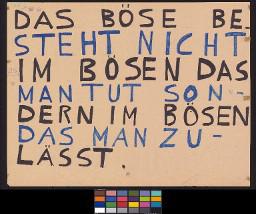 DAS BÖSE BE
STEHT NICHT
IM BÖSEN DAS
MAN TUT SON-
DERN IM BÖSEN
DAS MAN ZU-
LÄSST.